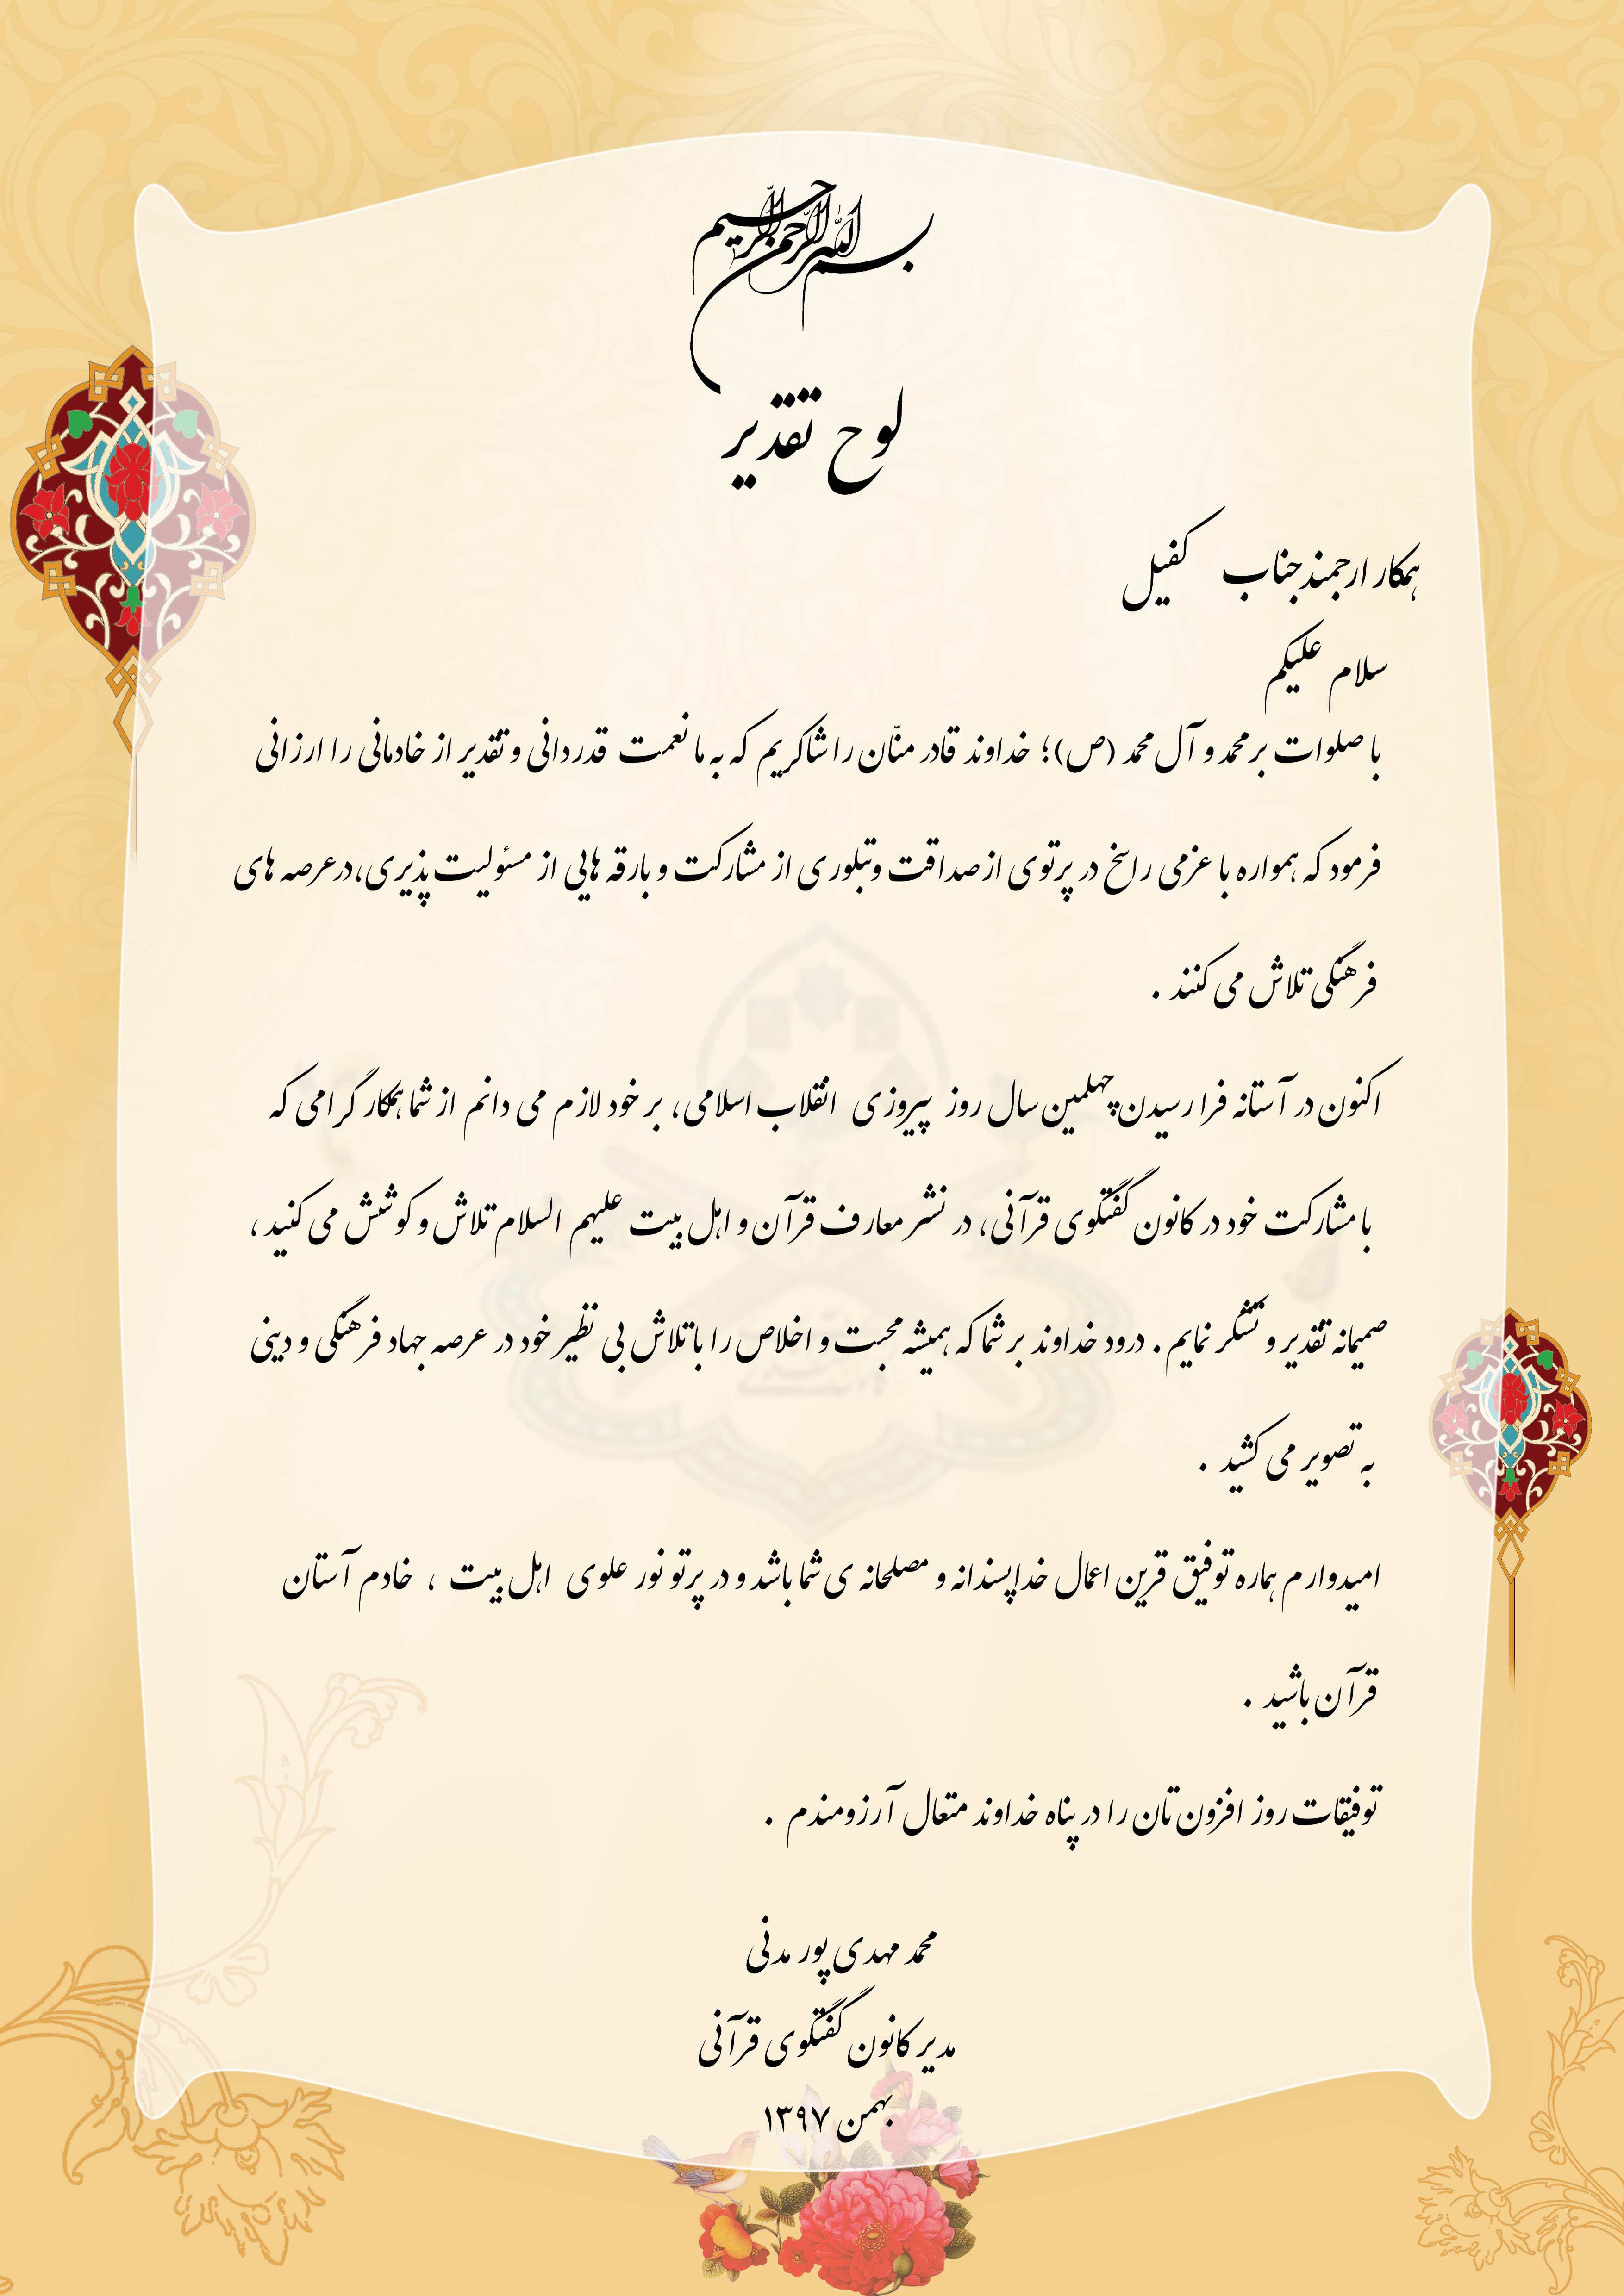 بسم الله الرحمن الرحیم
لوح تقدیر
همکار ارجمند جناب کفیل
سلام علیکم
با صلوات بر محمد و آل محمد (ص)؛ خداوند قادر منّان را شاکریم که به ما نعمت قدردانی و تقدیر از خادمانی را ارزانی
فرمود که همواره با عزمی راسخ در پرتوی از صداقت وتبلوری از مشارکت و بارقه هایی از مسئولیت پذیری،در عرصه های
فرهنگی تلاش می کنند .
اکنون در آستانه فرا رسیدن چهلمین سال روز پیروزی انقلاب اسلامی، بر خود لازم می دانم از شما همکار گرامی که
با مشارکت خود در کانون گفتگوی قرآنی، در نشر معارف قرآن و اهل بیت علیهم السلام تلاش و کوشش می کنید ،
صمیمانه تقدیر و تشکر نمایم . درود خداوند بر شما که همیشه محبت و اخلاص را با تلاش بی نظیر خود در عرصه جهاد فرهنگی و دینی
به تصویر می کشید .
امیدوارم هماره توفیق قرین اعمال خداپسندانه و مصلحانه ی شما باشد و در پرتو نور علوی اهل بیت ، خادم آستان
قرآن باشید .
توفیقات روز افزون تان را در پناه خداوند متعال آرزومندم .
محمد مهدی پور مدنی
مدیر کانون گفتگوی قرآنی
بهمن ۱۳۹۷